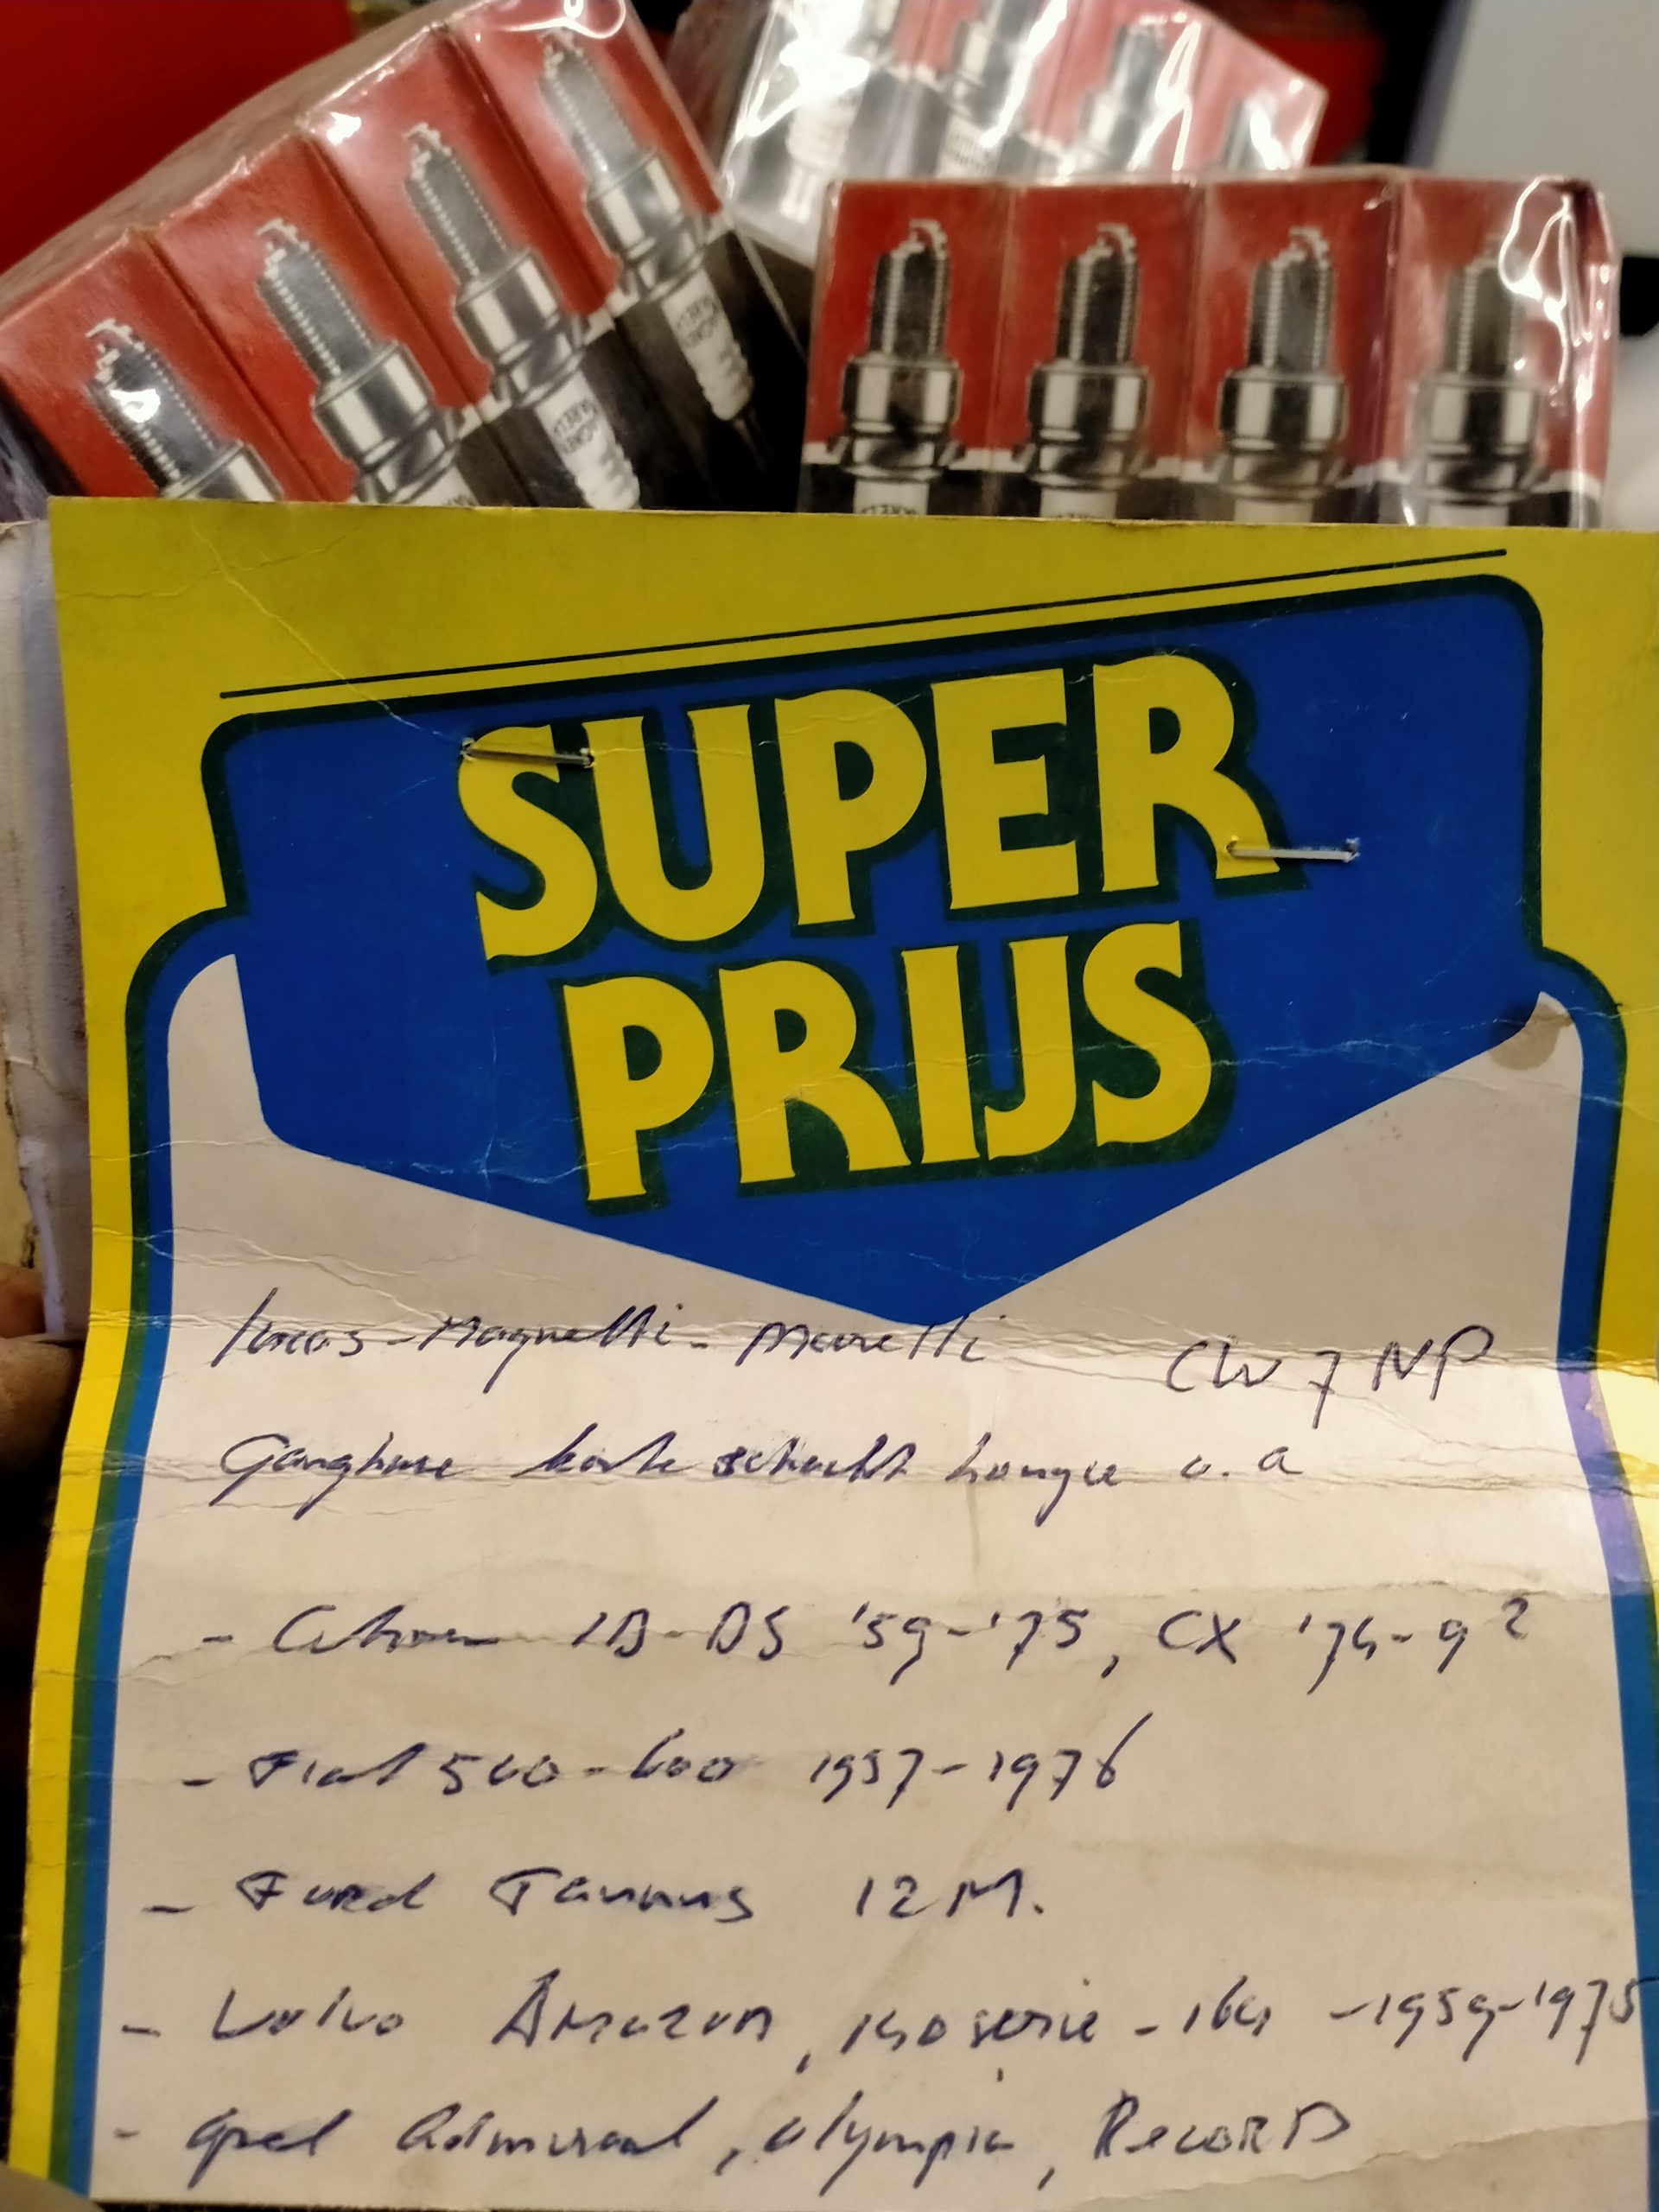 SUPER
PRIJS
Lucas-Magnetti-Marelli CW7NP
Gangbare korte schacht bougie o.a
- Citroen ID-DS '59-'75, CX '74-92
- Fiat 500-600 1957-1976
- Ford Taunus 12M.
- Volvo Amazon, 140 serie - 164 -1959-1975
- Opel Admiraal, Olympia, RecoRD